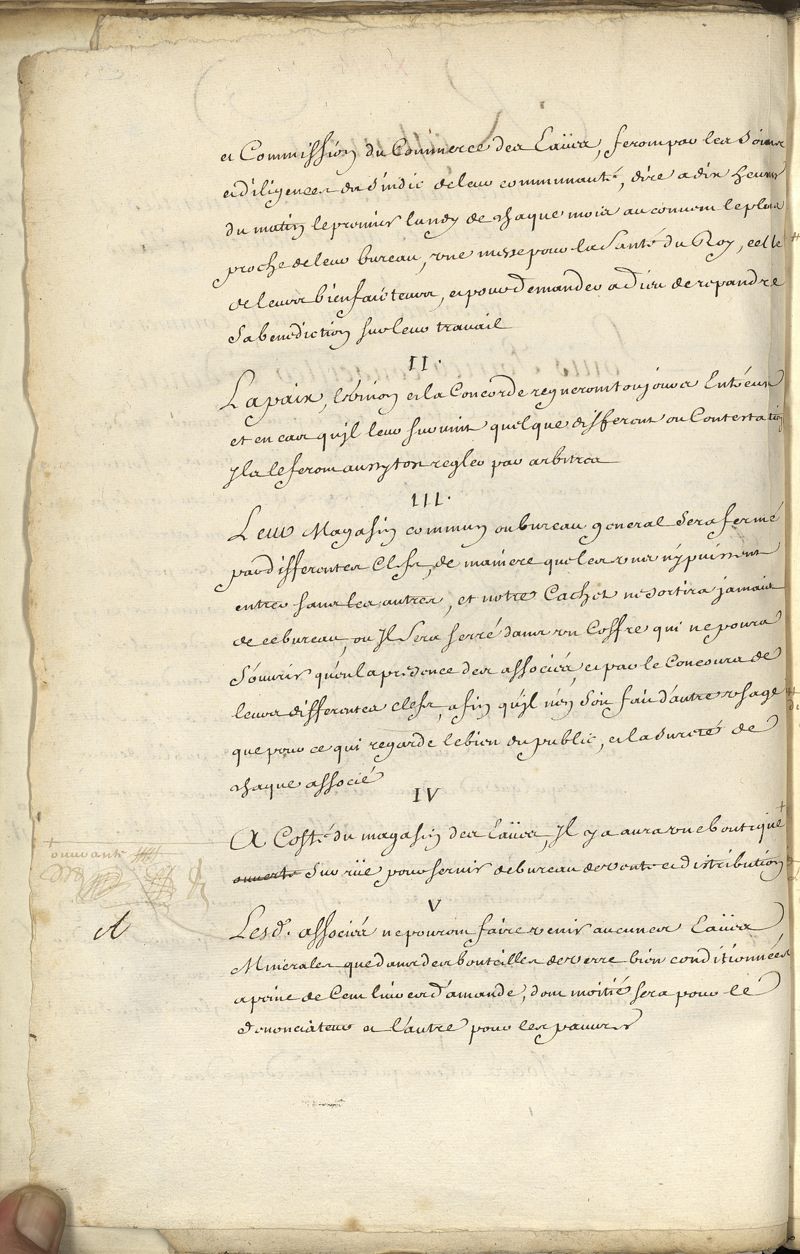 et Commission du Commerce des Eaües, feront par les soins
et diligences du sindic de leur communauté, dire a dix heures
du matin le premier lundy de chaque mois au couvent le plus
proche de leur bureau, une messe pour la Santé du Roy, celle
de leurs bienfaicteurs, et pour demander a Dieu de repandre
Sa benediction sur leur travail
II.
La paix, l'union et la Concorde regneront toujours Entr'eux
et en cas qu'jl leur survint quelque different ou Contestation
jls le feront aussytost regler par arbitres
III.
Leur Magasin commun ou bureau general sera fermé
par differentes Clefs, de maniere que les uns n'y puissent
entrer sans les autres, et notre Cachet ne sortira jamais
de ce bureau, ou Jl Sera serré dans un Coffre qui ne poura
S'ouvrir qu'en la presence des associés, et par le Concours de
leurs differentes clefs, afin qu'jl n'en soit fait d'autre usage
que pour ce qui regarde le bien du public, et la sureté de
chaque associé
IV
A Costé du magasin des Eaües, Jl y aura une boutique +
+ ouvrante
ouverte sur rüe pour servir de bureau de vente et distribution
V
Lesd. associés ne pouront faire venir aucunes Eaües
Minerales que dans des bouteilles de verre bien conditionnées
a peine de Cent livres d'amande, dont moitié sera pour le
denonciateur et l'autre pour les pauvres